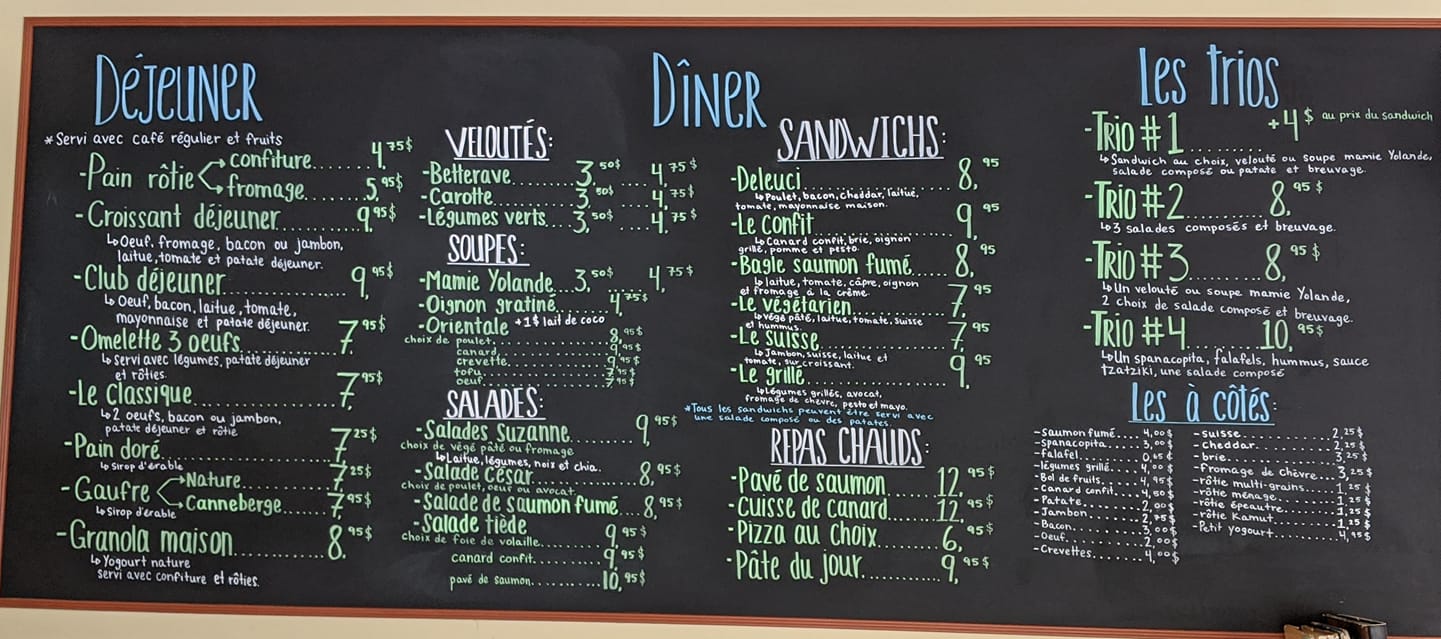 DÉJEUNER
*Servi avec café régulier et fruits
-Pain rôtie confiture....... 4,75$
fromage........ 5,95$
-Croissant déjeuner......... 9,95$
↳Oeuf, fromage, bacon ou jambon,
laitue, tomate et patate déjeuner.
-Club déjeuner............ 9,95$
↳Oeuf, bacon, laitue, tomate,
mayonnaise et patate déjeuner.
-Omelette 3 oeufs.......... 7,95$
↳Servi avec légumes, patate déjeuner
et rôties.
-Le Classique............ 7,95$
↳2 oeufs, bacon ou jambon,
patate déjeuner et rôtie
-Pain doré............ 7,25$
↳Sirop d'érable
-Gaufre Nature......... 7,25$
Canneberge...... 7,95$
↳Sirop d'érable
-Granola maison......... 8,95$
↳Yogourt nature
servi avec confiture et rôties.
DÎNER
VELOUTÉS:
-Betterave........ 3,50$ .... 4,75$
-Carotte......... 3,50$ .... 4,75$
-Légumes verts.... 3,50$ .... 4,75$
SOUPES:
-Mamie Yolande... 3,50$ ..... 4,75$
-Oignon gratiné....... 4,75$
-Orientale +1$ lait de coco
choix de poulet............ 8,95$
canard............ 9,95$
crevette........... 9,95$
tofu............ 7,95$
oeuf............ 7,95$
SALADES:
-Salades Suzanne....... 9,95$
choix de végé pâté ou fromage
↳Laitue, légumes, noix et chia..
-Salade César........... 8,95$
choix de poulet, oeuf ou avocat
-Salade de saumon fumé... 8,95$
-Salade tiède
choix de foie de volaille....... 9,95$
canard confit........ 9,95$
pavé de saumon.......... 10,95$
SANDWICHS:
-Deleuci............... 8,95
↳Poulet, bacon, cheddar, laitue,
tomate, mayonnaise maison.
-Le confit............. 9,95
↳Canard confit, brie, oignon
grillé, pomme et pesto.
-Bagle saumon fumé..... 8,95
↳laitue, tomate, câpre, oignon
et fromage à la crème.
-Le végétarien.......... 7,95
↳végé pâté, laitue, tomate, suisse
et hummus.
-Le suisse............. 7,95
↳Jambon, suisse, laitue et
tomate, sur croissant.
-Le grillé.............. 9,95
↳Légumes grillés, avocat,
fromage de chèvre, pesto et mayo.
*Tous les sandwichs peuvent être servi avec
une salade composé ou des patates.
REPAS CHAUDS:
-Pavé de saumon...... 12,95$
-Cuisse de canard...... 12,95$
-Pizza au Choix........ 6,95$
-Pâte du jour........... 9,95$
Les trios
-TRIO #1.......... +4$ au prix du sandwich
↳Sandwich au choix, velouté ou soupe mamie Yolande,
salade composé ou patate et breuvage.
-TRIO #2........ 8,95$
↳3 salades composés et breuvage.
-TRIO #3........ 8,95$
↳Un velouté ou soupe mamie Yolande,
2 choix de salade composé et breuvage.
-TRIO #4....... 10,95$
↳Un spanacopita, falafels, hummus, sauce
tzatziki, une salade composé
Les à côtés:
-Saumon fumé.... 4,00$
-Spanacopita..... 3,00$
-Falafel......... 0,65¢
-légumes grillé.... 4,00$
-Bol de fruits..... 4,95$
-Canard confit.... 4,50$
-Patate........ 2,00$
-Jambon........ 2,75$
-Bacon......... 3,00$
-Oeuf.......... 2,00$
-Crevettes...... 4,00$
-suisse............. 2,25$
-cheddar........... 2,25$
-brie.............. 3,25$
-Fromage de chèvre.. 3,25$
-rôtie multi-grains..... 1,25$
-rôtie ménage......... 1,25$
-rôtie épeautre........ 1,25$
-rôtie Kamut......... 1,25$
-Petit yogourt........ 4,95$